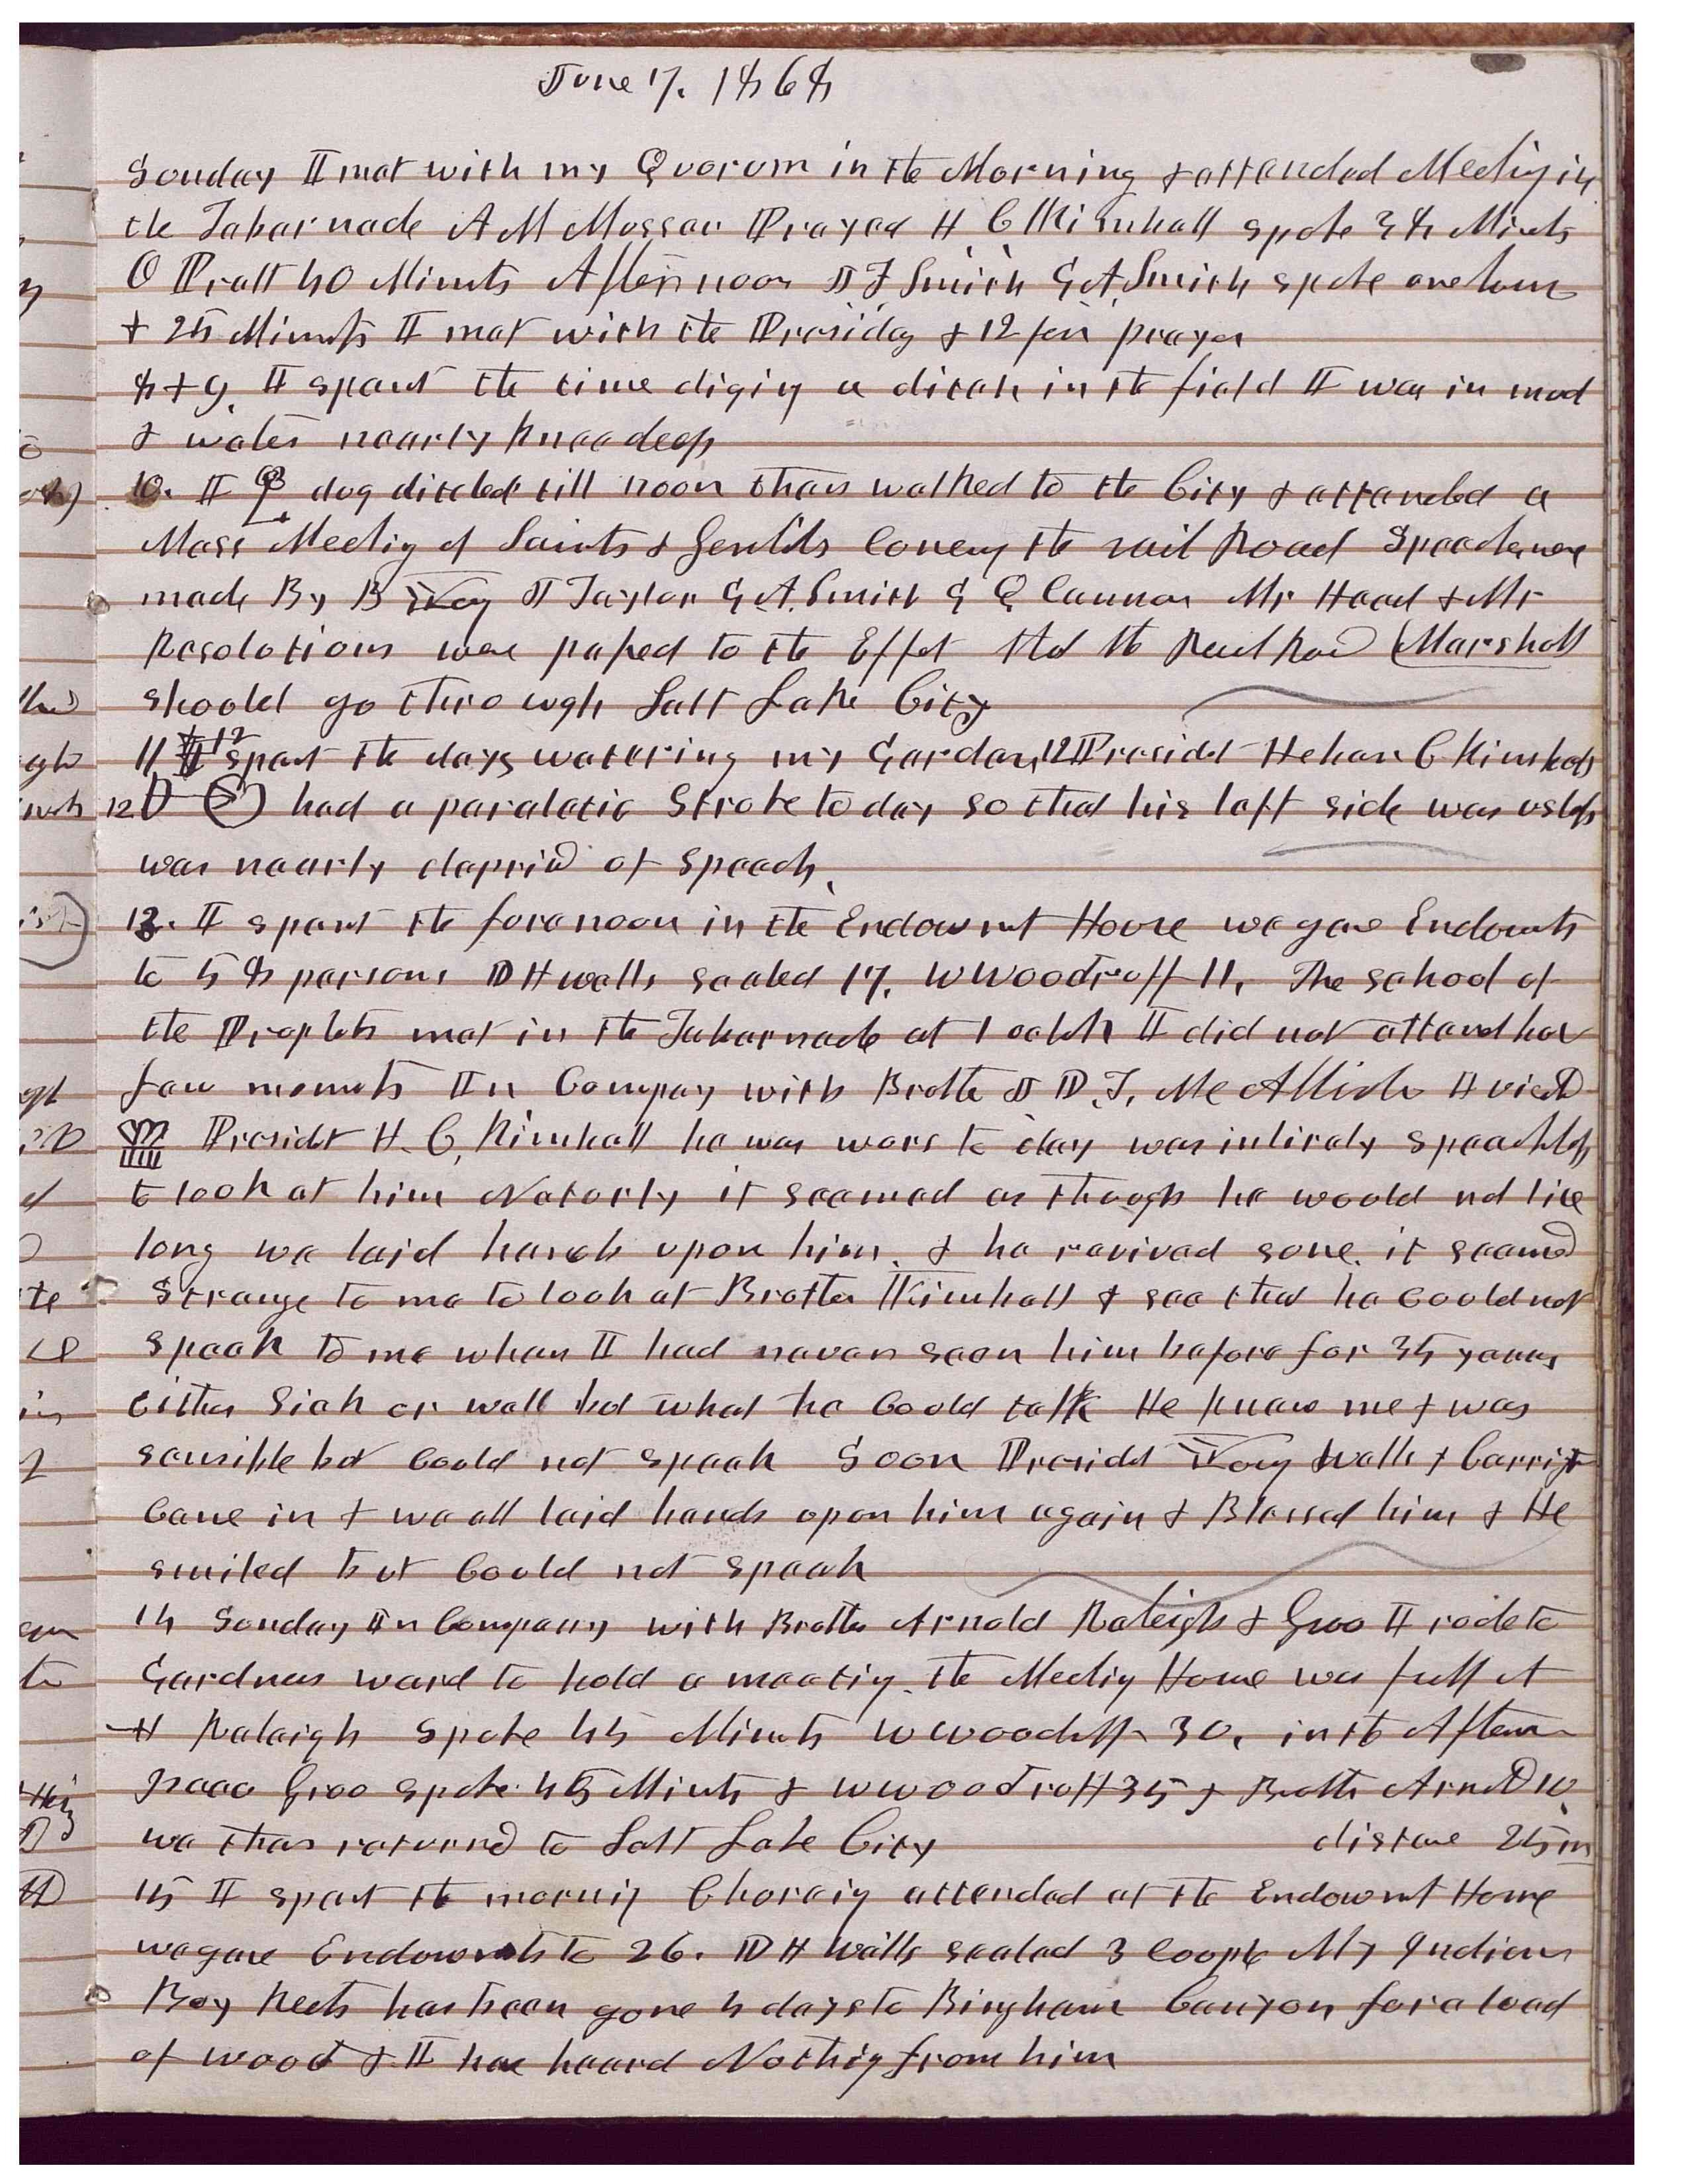 June 7. 1868
Sunday I met with my Quorum in the Morning & attended Meetig in
the Tabarnacle A M Mussar Prayed H. C Kimball spoke 38 Minuts
O Pratt 40 Minuts Afternoon J F Smith G A. Smith spoke one hour
& 25 Minuts I met with the Presidcy & 12 for prayer
8 & 9. I spent the time digig a ditch in the field I was in mud
& water nearly knee deep
10. I dug ditches till noon then walked to the City & attended a
Mass Meetig of Saints & Gentiles the rail Road Speeches were
made By B Young J Taylor G A. Smith G Q Cannon Mr Head & Mr
Resolutions were passed to the Effect that the Rail Road (Marshall
should go through Salt Lake City
11 & 12 I spent the days watering my Garden, 12 President Heber C Kimball
12 had a paralatic Stroke to day so that his left side was usless
was nearly deprivd of speech,
13. I spent the forenoon in the Endowmt House we gave Endowmts
to 58 persons D H Wells sealed 17, W Woodruff 11, The school of
the Prophets met in the Tabarnacle at 1 oclok I did not attend but
few momets In Company with Brother J D. T. McAllister I visited
Presidet H. C. Kimball he was wors to day was intirely speachless
to look at him Naturly it seemed as though he would not live
long we laid hands upon him & he revived some. it seemed
Strange to me to look at Brother Kimball & see that he Could not
speak to me when I had never seen him before for 35 years
Either Sick or well but what he Could talk He knew me & was
sensible but Could not speak Soon Presidet Young Wells & Carrigtn
Came in & we all laid hands upon him again & Blessed him & He
smiled but Could not speak
14 Sunday In Company with Brother Arnold Raleigh & Groo I rode to
Gardners ward to hold a meetig. the Meetig House was full A
H Raleigh Spoke 45 Minuts W Woodruff 30, in the After
noon Groo spoke 45 Minuts & W Woodruff 35 & Brother Arnold 10
we then returnd to Salt Lake City distane 25 m
15 I spent the mornig Choreig attended at the Endowmt House
we gave Endowmts to 26. D H Wells sealed 3 Couple My Indian
Boy has been gone 4 days to Bingham Canyon for a load
of wood & I have heard Nothig from him